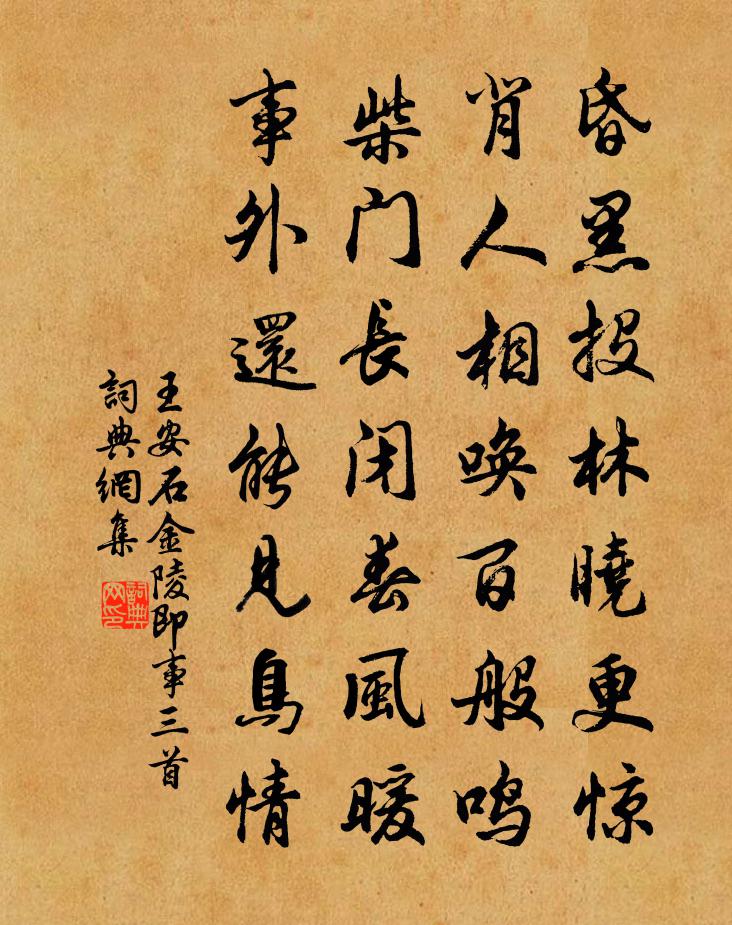 昏黑投林曉更惊
背人相唤百般鸣
柴门長闭春風暖
事外還能見鳥情
王安石金陵即事三首
詞典網集
詞典网印